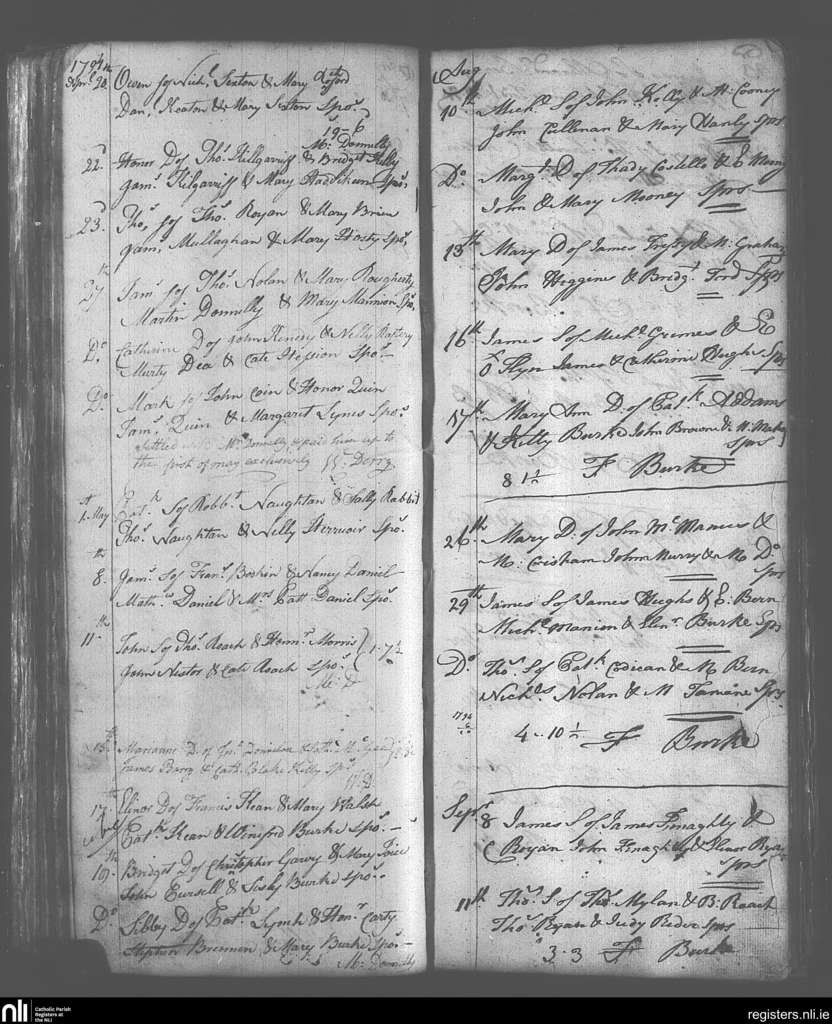 1794
Apr. 20. Owen son Nich. Sexton & Mary
Dan. Keaton & Mary Sexton Spos.
19 - 6
Mr. Donnelly
22d Honor D of Thos. Killgarriff & Bridget Kelly
Jams. Kilgarriff & Mary Spos.
23d Thos. soy Thos. Royan & Mary Brien
Jams. Mullaghan & Mary Hosty Spos.
27th Jams. soy Thos. Nolan & Mary Rougherty
Martin Donnelly & Mary Mannion Spos.
Do. Catherine D of John & Nelly Raftery
Murty Dea & Cate Hession Spos.
Do. Mark soy John Coin & Honor Quin
Jams. Quin & Margaret Lynes Spos.
Settled with Mr. Donnelly & paid him up to
the first of may exclusively Derry
1st May Patk. Soy Robbt. Naughtan & Sally Rabbit
Thos. Naughtan & Nelly Spos.
8th Jams. Soy Frans. Boskin & Nancy Daniel
Mathw. Daniel & Mrs. Catt Daniel Spos.
11th John Soy Thos. Roach & Honnr. Morris
John Nestor & Cate Roach Spos. 1 - 7 ½
Mr. D
15th Marianne D. of Jno. & Cath.
James Barry & Cath. Blake Kelly Spos.
17th Elinor D of Francis Kean & Mary Walsh
Patk. Kean & Winifred Burke Spos.
19th Bridget D of Christopher Garvy & Mary Joice
John & Sisly Burke Spos.
Do. Sibby D of Patk. Lynch & Honr. Carty
Stephen Brennen & Mary Burke Spos.
Mr. Donnelly
Aug
10th Michl. S of John Kelly & M: Cooney
John Cullinan & Mary Hanly Sprs
Do. Margt. D of Thady Costello & E
John & Mary Mooney Sprs
13th Mary D of James & M: Graham
John Heggins & Bridgt. Ford Sprs
16th James S of Michl. Grimes & E
O Flyn James & Catherine Hughs Sprs
17th Mary Ann D. of Patk. Addams
& Kitty Burke John Browne & M:
Sprs
8 1½ F Burke
26th Mary D. of John Mc Manus &
M: Crisham John Murry & M Do.
Sprs
29th James S of James Hughs & E: Bern
Michl. Manion & Elinr. Burke Sprs
Do. Thos. S of Patk. & M Bern
Nichls. Nolan & M Sprs
1794
4 - 10 ½ F Burke
Sepr. 8 James S of James Finaghty &
C Royan John Finaghty & Elinor Ryan
Sprs
11th Thos. S of Thos. Mylan & B: Roach
Thos. Ryan & Judy Sprs
3 - 3 F Burke
nli
Catholic Parish
Registers at
the NLI
registers.nli.ie